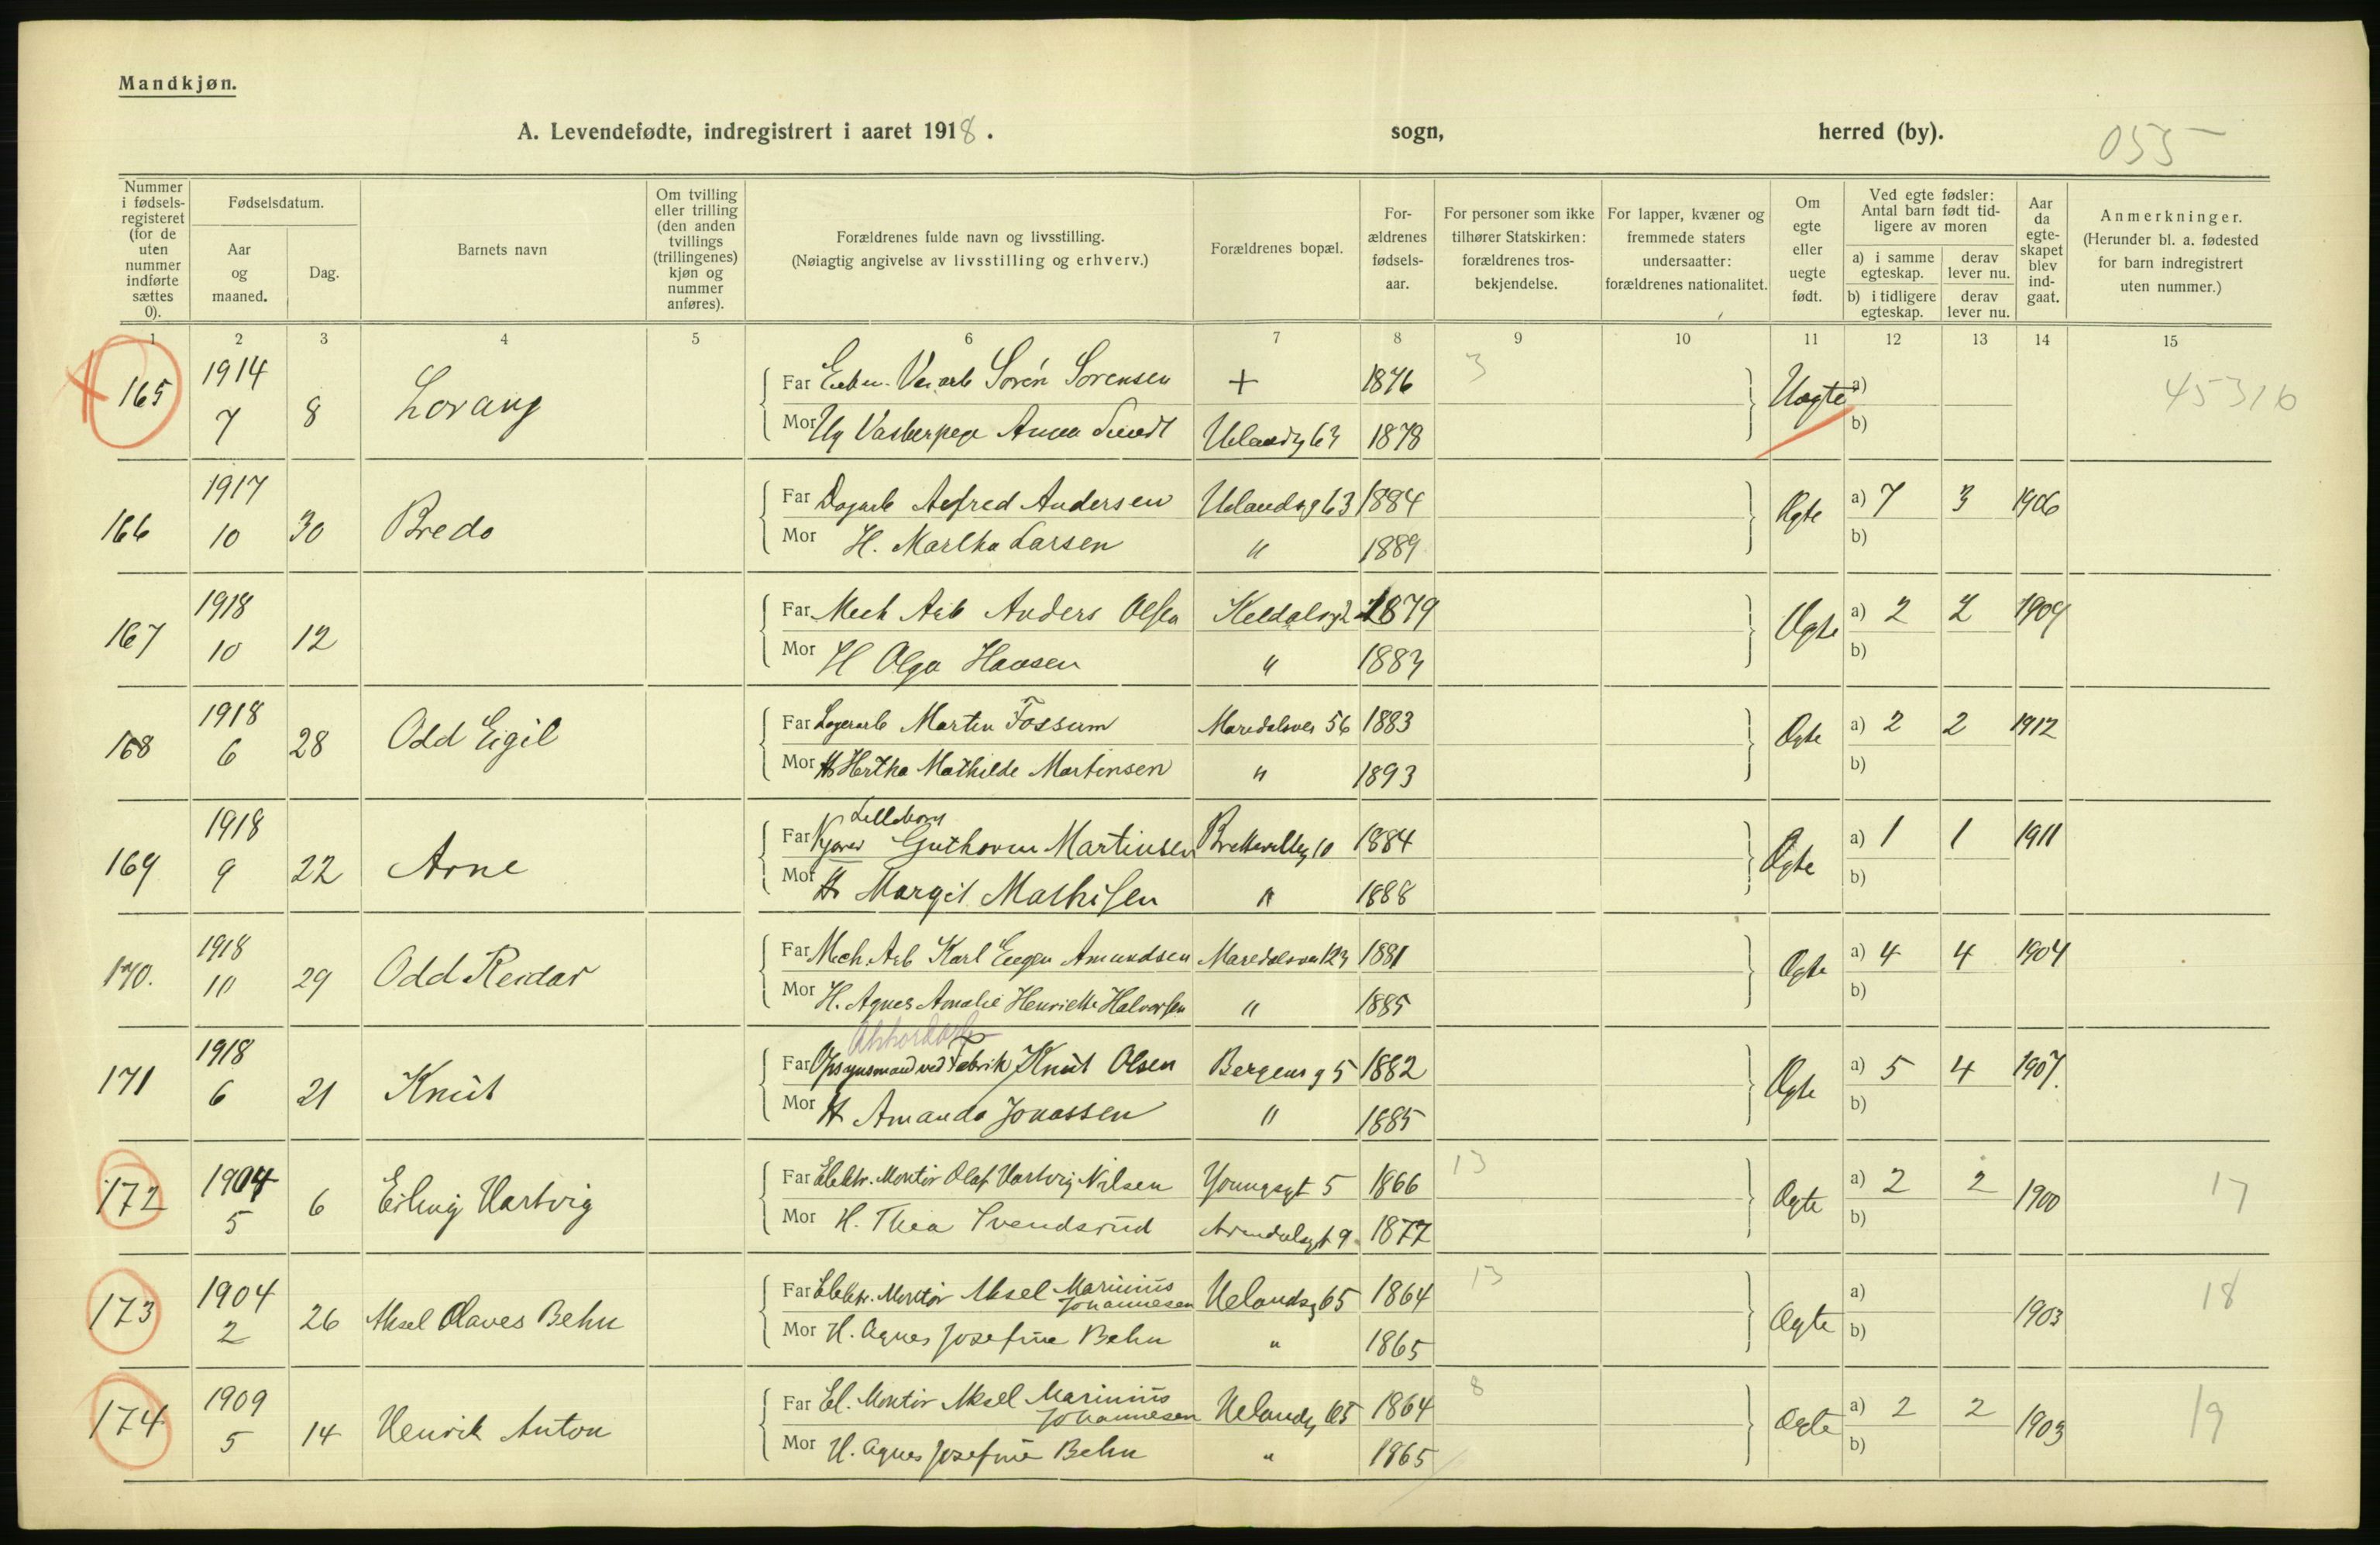 Mandkjøn.
A. Levendefødte, indregistrert i aaret 1918. sogn, herred (by). 055
Nummer i fødselsregisteret (for de uten nummer indførte sættes 0).
Fødselsdatum.
Aar og maaned.
Dag.
Barnets navn
Om tvilling eller trilling (den anden tvillings (trillingenes) kjøn og nummer anføres).
Forældrenes fulde navn og livsstilling.
(Nøiagtig angivelse av livsstilling og erhverv.)
Forældrenes bopæl.
Forældrenes fødselsaar.
For personer som ikke tilhører Statskirken: forældrenes trosbekjendelse.
For lapper, kvæner og fremmede staters undersaatter: forældrenes nationalitet.
Om egte eller uegte født.
Ved egte fødsler: Antal barn født tidligere av moren
a) i samme egteskap. derav lever nu.
b) i tidligere egteskap. derav lever nu.
Aar da egteskapet blev indgaat.
Anmerkninger.
(Herunder bl. a. fødested for barn indregistrert uten nummer.)
1 2 3 4 5 6 7 8 9 10 11 12 13 14 15
165 1914 7 8 Lorang Far Sørén Sørensen + 1876 3 Uegte a) 45316
Mor Ug Anna Uelandsg 63 1878 b)
166 1917 10 30 Bredo Far Dagarb Alfred Andersen Uelandsg 63 1884 Egte a) 7 3 1906
Mor H. Martha Larsen " 1889 b)
167 1918 10 12 Far Mech Arb Anders Olsen 1879 Egte a) 2 2 1909
Mor H Olga Hansen " 1883 b)
168 1918 6 28 Odd Eigil Far Lagerarb Martin Fossum Maridalsvei 56 1883 Egte a) 2 2 1912
Mor H Hertha Mathilde Martinsen " 1893 b)
169 1918 9 22 Arne Far Guthorm Martinsen 1884 Egte a) 1 1 1911
Mor H Margit Mathisen " 1888 b)
170. 1918 10 29 Odd Reidar Far Mech. Arb Karl Eugen Amundsen Maridalsvei 123 1881 Egte a) 4 4 1904
Mor H. Agnes Amalie Henriette Halvorsen " 1885 b)
171 1918 6 21 Knut Far Opsynsmand ved Fabrik Knut Olsen Bergensg 5 1882 Egte a) 5 4 1907.
Mor H Amanda Jonassen " 1885 b)
172 1904 5 6 Erling Hartvig Far Elektr. Montör Olaf Hartvig Nilsen Youngsgt 5 1866 13 Egte a) 2 2 1900 17
Mor H. Thea Svendsrud Arendalsgt 9 1877 b)
173 1904 2 26 Aksel Olaves Behn Far Elektr. Montör Aksel Marinius Johannesen Uelandsg 65 1864 13 Egte a) 1903 18
Mor H. Agnes Josefine Behn " 1865 b)
174 1909 5 14 Henrik Anton Far El. Montör Aksel Marinius Johannesen Uelandsg 65 1864 8 Egte a) 2 2 1903 19
Mor H. Agnes Josefine Behn " 1865 b)